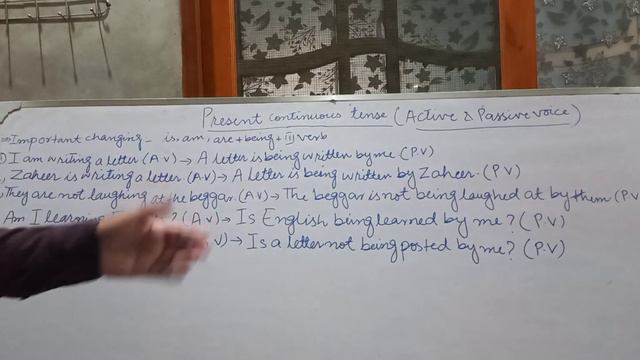 Present continuous tense (Active & Passive voice)
⇒ Important changing - is, am, are + being + III verb
I am writing a letter (A.V) → A letter is being written by me (P.V)
Zaheer is writing a letter. (A.V) → A letter is being written by Zaheer. (P.V)
They are not laughing at the beggar. (A.V) → The beggar is not being laughed at by them (P.V
Am I learning ? (A.V) → Is English being learned by me? (P.V)
V) → Is a letter not being posted by me? (P.V)